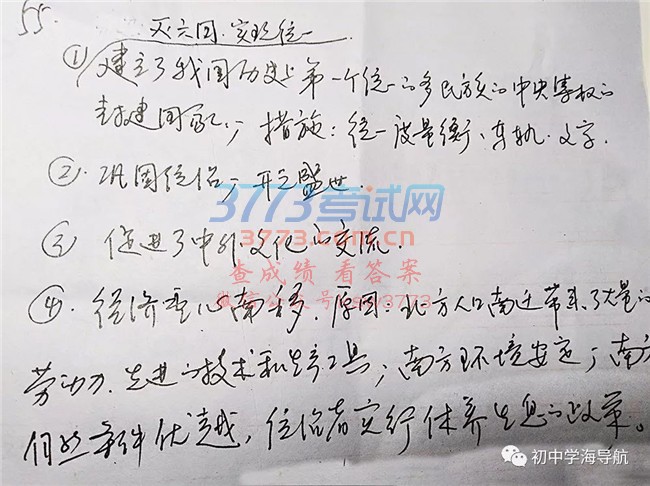 55
灭六国,实现统一
① 建立了我国历史上第一个统一的多民族的中央集权的
封建国家;措施:统一度量衡、车轨、文字.
② 巩固统治,开元盛世.
3773考试网
3773.com.cn
③ 促进了中外文化的交流.
查成绩 看答案
④ 经济重心南移.原因:北方人口南迁带来了大量的
劳动力、先进的技术和生产工具;南方环境安定;南方
自然条件优越,统治者实行休养生息的政策。
初中学海导航